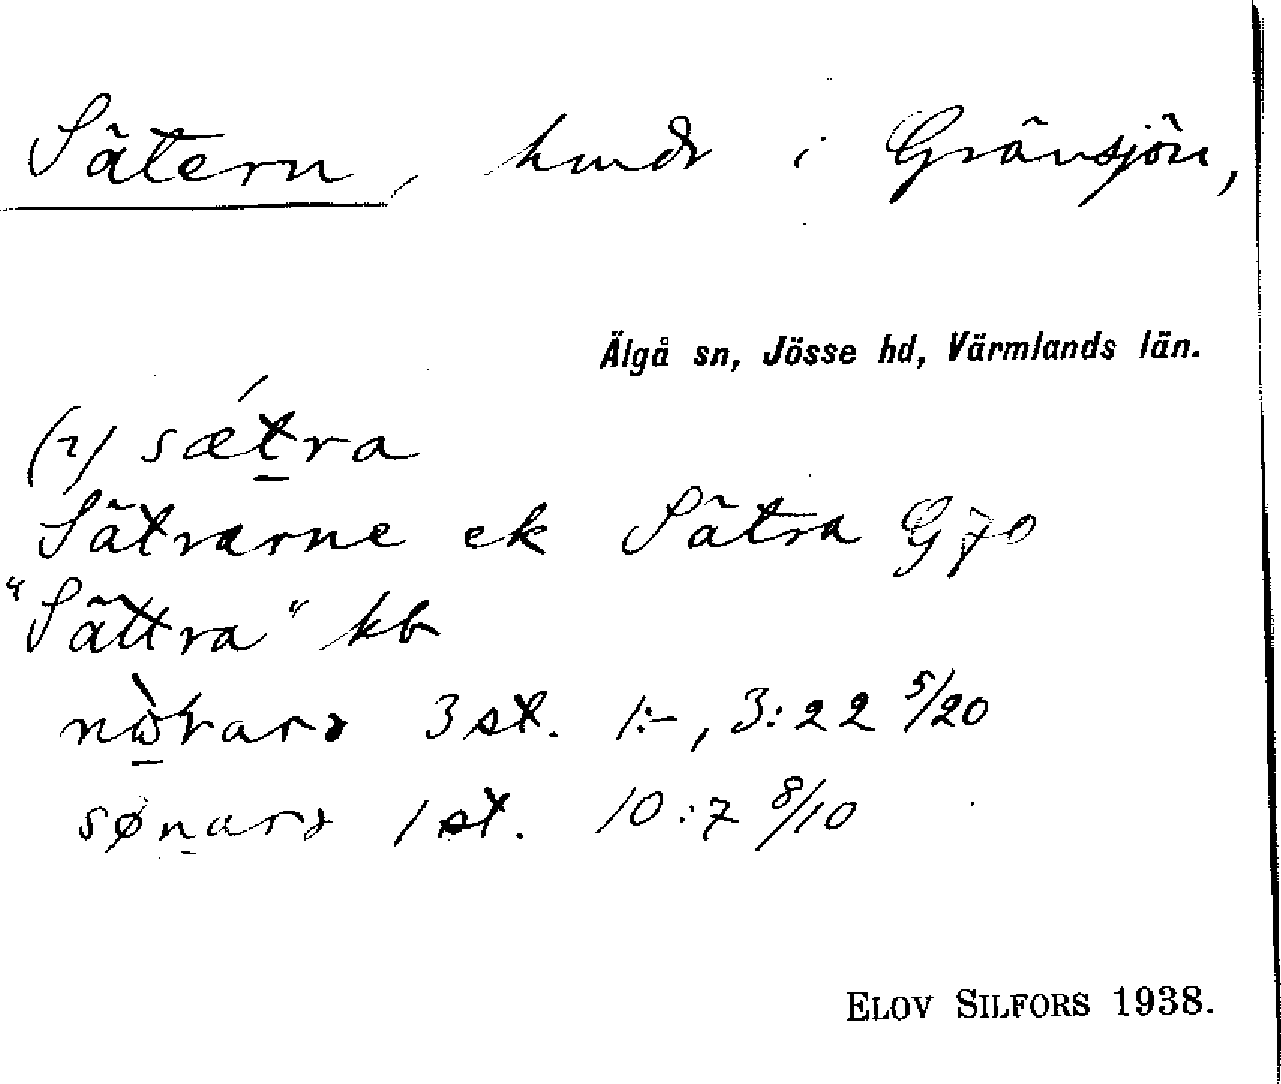 Sätern, hmdr i Gränsjön,
Älgå sn, Jösse hd, Värmlands län.
(2) sǽtra
Sätrarne ek Sätra G70
"Sättra" kb
3 st. 1:-, 3:22 5/20
sønarə 1 st. 10:7 8/10
ELOV SILFORS 1938.